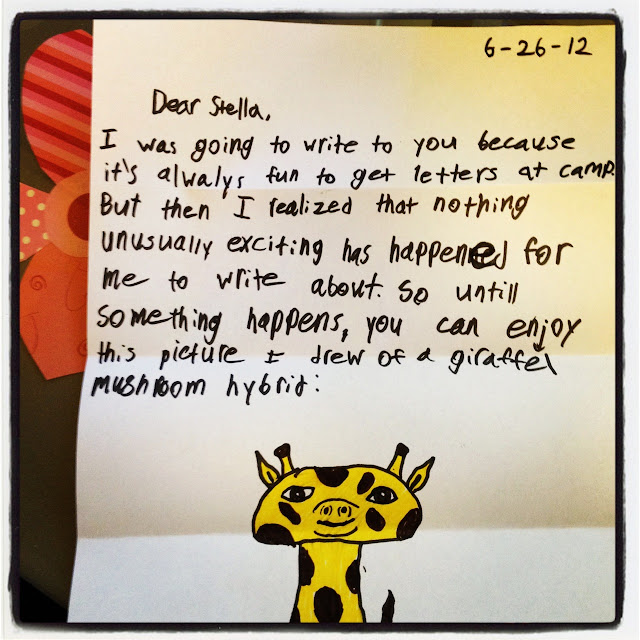 6-26-12
Dear Stella,
I was going to write to you because
it's alwalys fun to get letters at camp.
But then I realized that nothing
unusually exciting has happened for
me to write about. So untill
something happens, you can enjoy
this picture I drew of a giraffe/
mushroom hybrid: